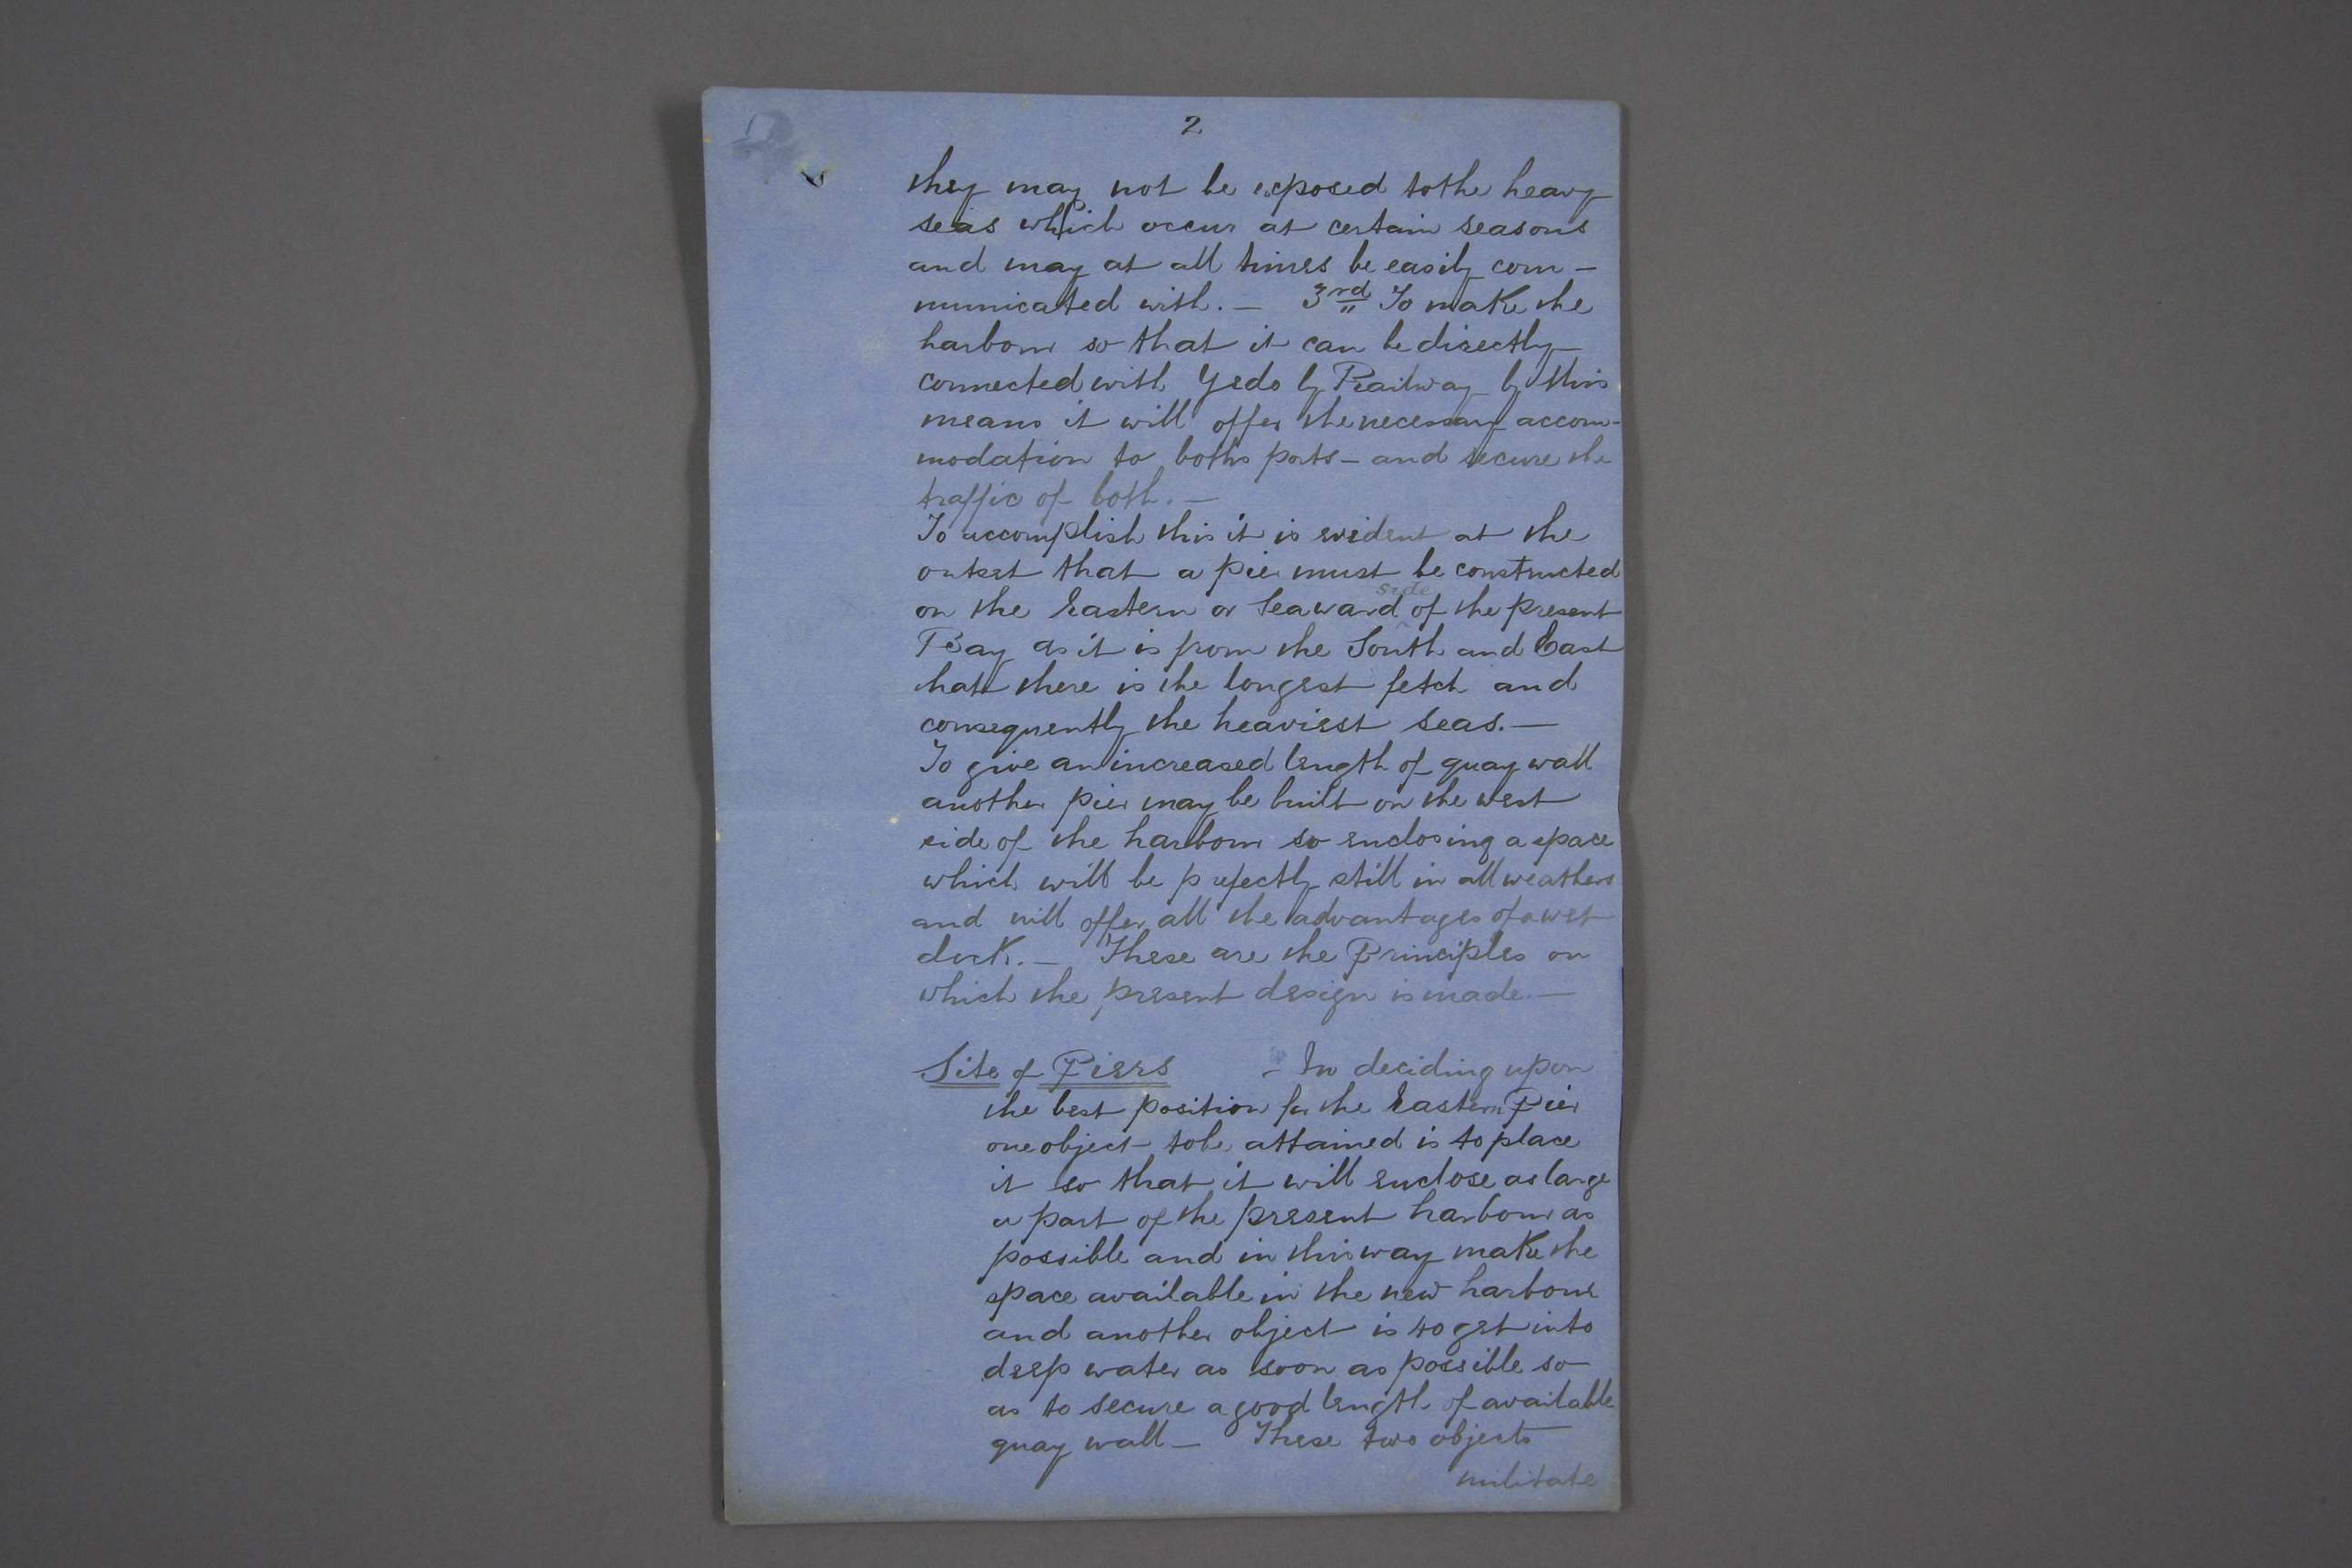 2
they may not be exposed to the heavy
seas which occur at certain seasons
and may at all times be easily com-
municated with. — 3rd To make the
harbour so that it can be directly
connected with Yedo by Railway by this
means it will offer the necessary accom-
modation to both ports — and secure the
traffic of both. —
To accomplish this it is evident at the
outset that a pier must be constructed
on the Eastern or Seaward side of the present
Bay as it is from the South and East
that there is the longest fetch and
consequently the heaviest seas. —
To give an increased length of quay wall
another pier may be built on the west
side of the harbour so enclosing a space
which will be perfectly still in all weathers
and will offer all the advantages of a wet
dock. — These are the Principles on
which the present design is made. —
Site of Piers - In deciding upon
the best position for the Eastern Pier
one object to be attained is to place
it so that it will enclose as large
a part of the present harbour as
possible and in this way make the
space available in the new harbour
and another object is to get into
deep water as soon as possible so
as to secure a good length of available
quay wall — These two objects
militate